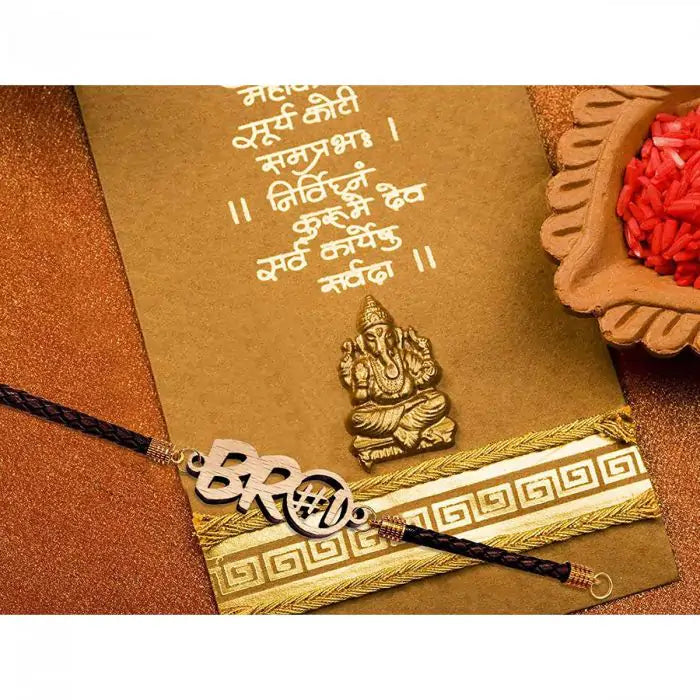 महाका
सूर्य कोटी
समप्रभः ।
॥ निर्विघ्नं
कुरूमे देव
सर्व कार्येषु
सर्वदा ॥
BRO
#1